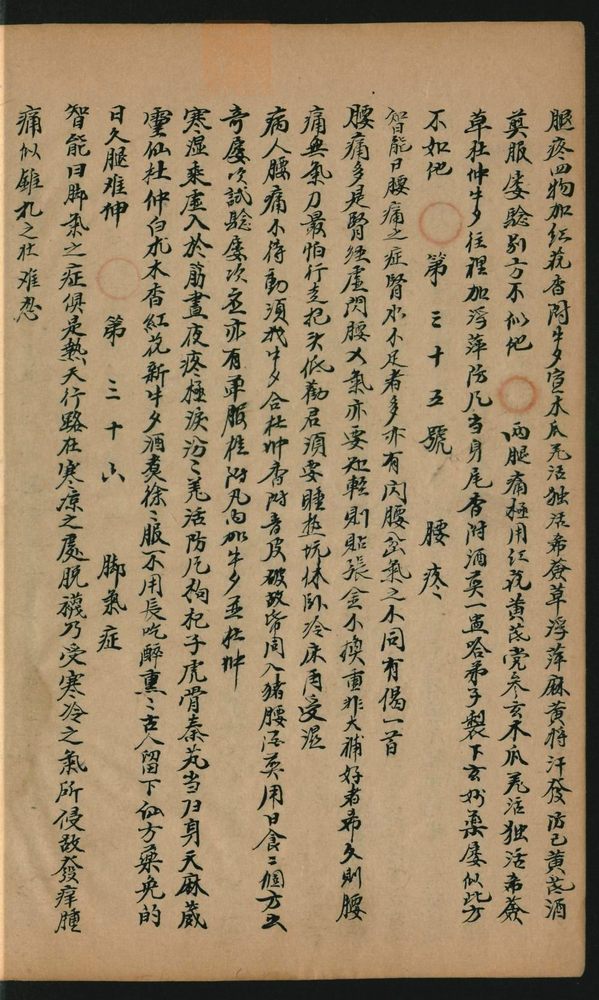 腿疼四物加红花香附牛夕宣木瓜羌活独活希薟草浮萍麻黄将汗發防己黄芪酒
英服屡驗别方不似他 两腿痛極用红花黄芪党参玄木瓜羌活独活希薟
草杜仲牛夕往裡加浮萍防凡当身尾香附酒英一壶咨弟子製下玄妙藥屡似此方
不如他 第三十五號 腰疼
智能曰腰痛之症腎水不足者多亦有闪腰岔氣之不同有偈一首
腰痛多是腎經虚閃腰乂氣亦要知輕則貼張金不换重非大補好者希久則腰
痛無氣力最怕行走把头低勸君須要睡热坑休卧冷床再受湿
病人腰痛不待動須找牛夕合杜仲香附骨皮破故紙同入猪腰酒英用日食二個方立
奇屡次試驗屡次灵亦有單服桂附凡内加牛夕並杜仲
寒湿乘虚入於筋晝夜疼極淚汾〻羌活防凡枸杞子虎骨秦艽当归身天麻葳
靈仙杜仲白朮木香紅花新牛夕酒煮徐〻服不用長吃醉熏〻古人留下仙方藥免的
日久腿难伸 第三十六 脚氣症
智能曰脚氣之症俱是熱天行路在寒凉之處脱襪乃受寒冷之氣所侵故發痒腫
痛似錐扎之壮难忍